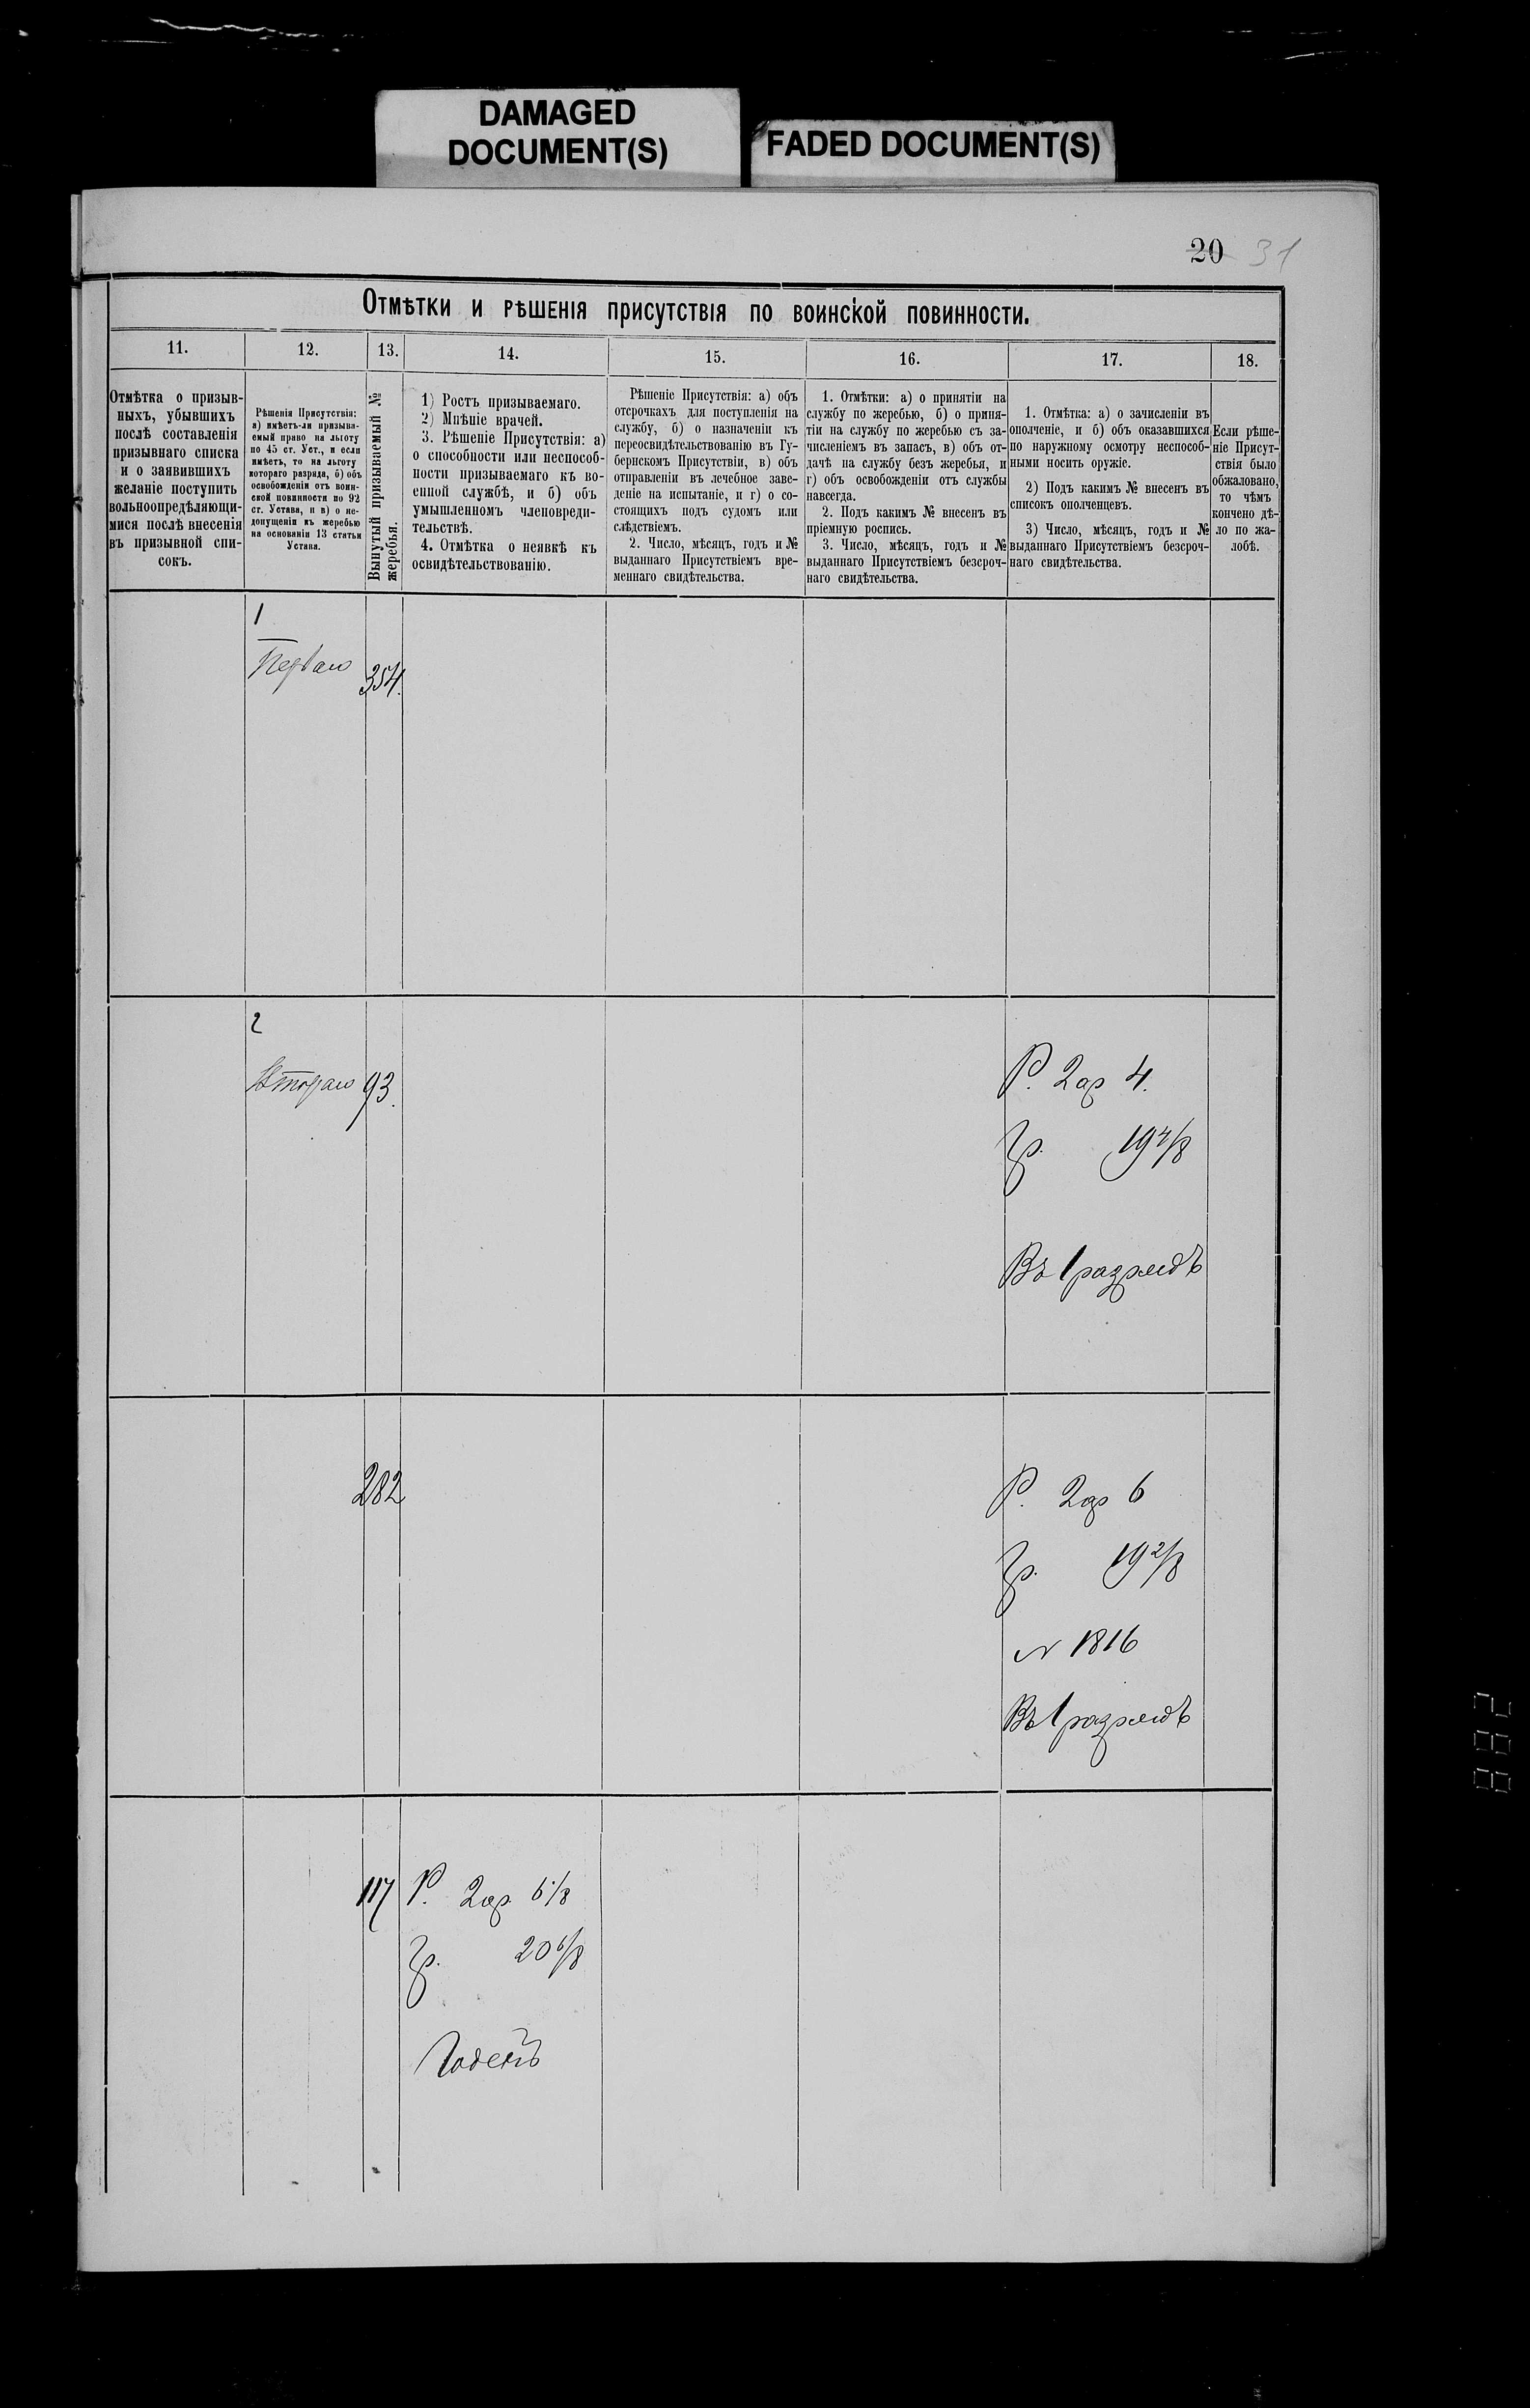 DAMAGED
DOCUMENT(S)
FADED DOCUMENT(S)
20 31
Отмѣтки и рѣшенія присутствія по воинской повинности.
11.
12.
13.
14.
15.
16.
17.
18.
Отмѣтка о призыв-
ныхъ, убывшихъ
послѣ составленія
призывнаго списка
и о заявившихъ
желаніе поступить
вольноопредѣляющи-
мися послѣ внесенія
въ призывной спи-
сокъ.
Рѣшенія Присутствія:
а) имѣетъ-ли призыва-
емый право на льготу
по 45 ст. Уст., и если
имѣетъ, то на льготу
котораго разряда, б) объ
освобожденіи отъ воин-
ской повинности по 92
ст. Устава, и в) о не-
допущеніи къ жеребью
на основаніи 13 статьи
Устава.
Вынутый призываемый №
жеребья.
1) Ростъ призываемаго.
2) Мнѣніе врачей.
3. Рѣшеніе Присутствія: а)
о способности или неспособ-
ности призываемаго къ во-
енной службѣ, и б) объ
умышленномъ членовреди-
тельствѣ.
4. Отмѣтка о неявкѣ къ
освидѣтельствованію.
Рѣшеніе Присутствія: а) объ
отсрочкахъ для поступленія на
службу, б) о назначеніи къ
переосвидѣтельствованію въ Гу-
бернскомъ Присутствіи, в) объ
отправленіи въ лечебное заве-
деніе на испытаніе, и г) о со-
стоящихъ подъ судомъ или
слѣдствіемъ.
2. Число, мѣсяцъ, годъ и №
выданнаго Присутствіемъ вре-
меннаго свидѣтельства.
1. Отмѣтки: а) о принятіи на
службу по жеребью, б) о приня-
тіи на службу по жеребью съ за-
численіемъ въ запасъ, в) объ от-
дачѣ на службу безъ жеребья, и
г) объ освобожденіи отъ службы
навсегда.
2. Подъ какимъ № внесенъ въ
пріемную роспись.
3. Число, мѣсяцъ, годъ и №
выданнаго Присутствіемъ безсроч-
наго свидѣтельства.
1. Отмѣтка: а) о зачисленіи въ
ополченіе, и б) объ оказавшихся
по наружному осмотру неспособ-
ными носить оружіе.
2) Подъ какимъ № внесенъ въ
списокъ ополченцевъ.
3) Число, мѣсяцъ, годъ и №
выданнаго Присутствіемъ безсроч-
наго свидѣтельства.
Если рѣше-
ніе Присут-
ствія было
обжаловано,
то чѣмъ
кончено дѣ-
ло по жа-
лобѣ.
1
Перваго
354.
2
Втораго 93.
Р. 2 ар 4.
Гр. 19 4/8
Въ 1 разрядъ
282
Р. 2 ар 6
Гр. 19 2/8
N 1816
Въ 1 разрядъ
117 Р. 2 ар 6 1/8
Гр. 20 6/8
Годенъ
882